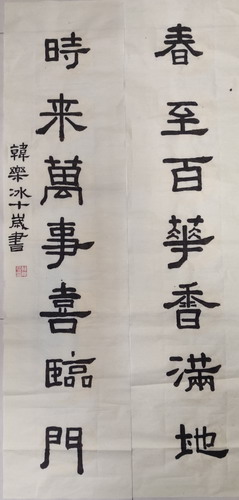 春至百花香满地
時来萬事喜臨門
韓樂冰十歲書